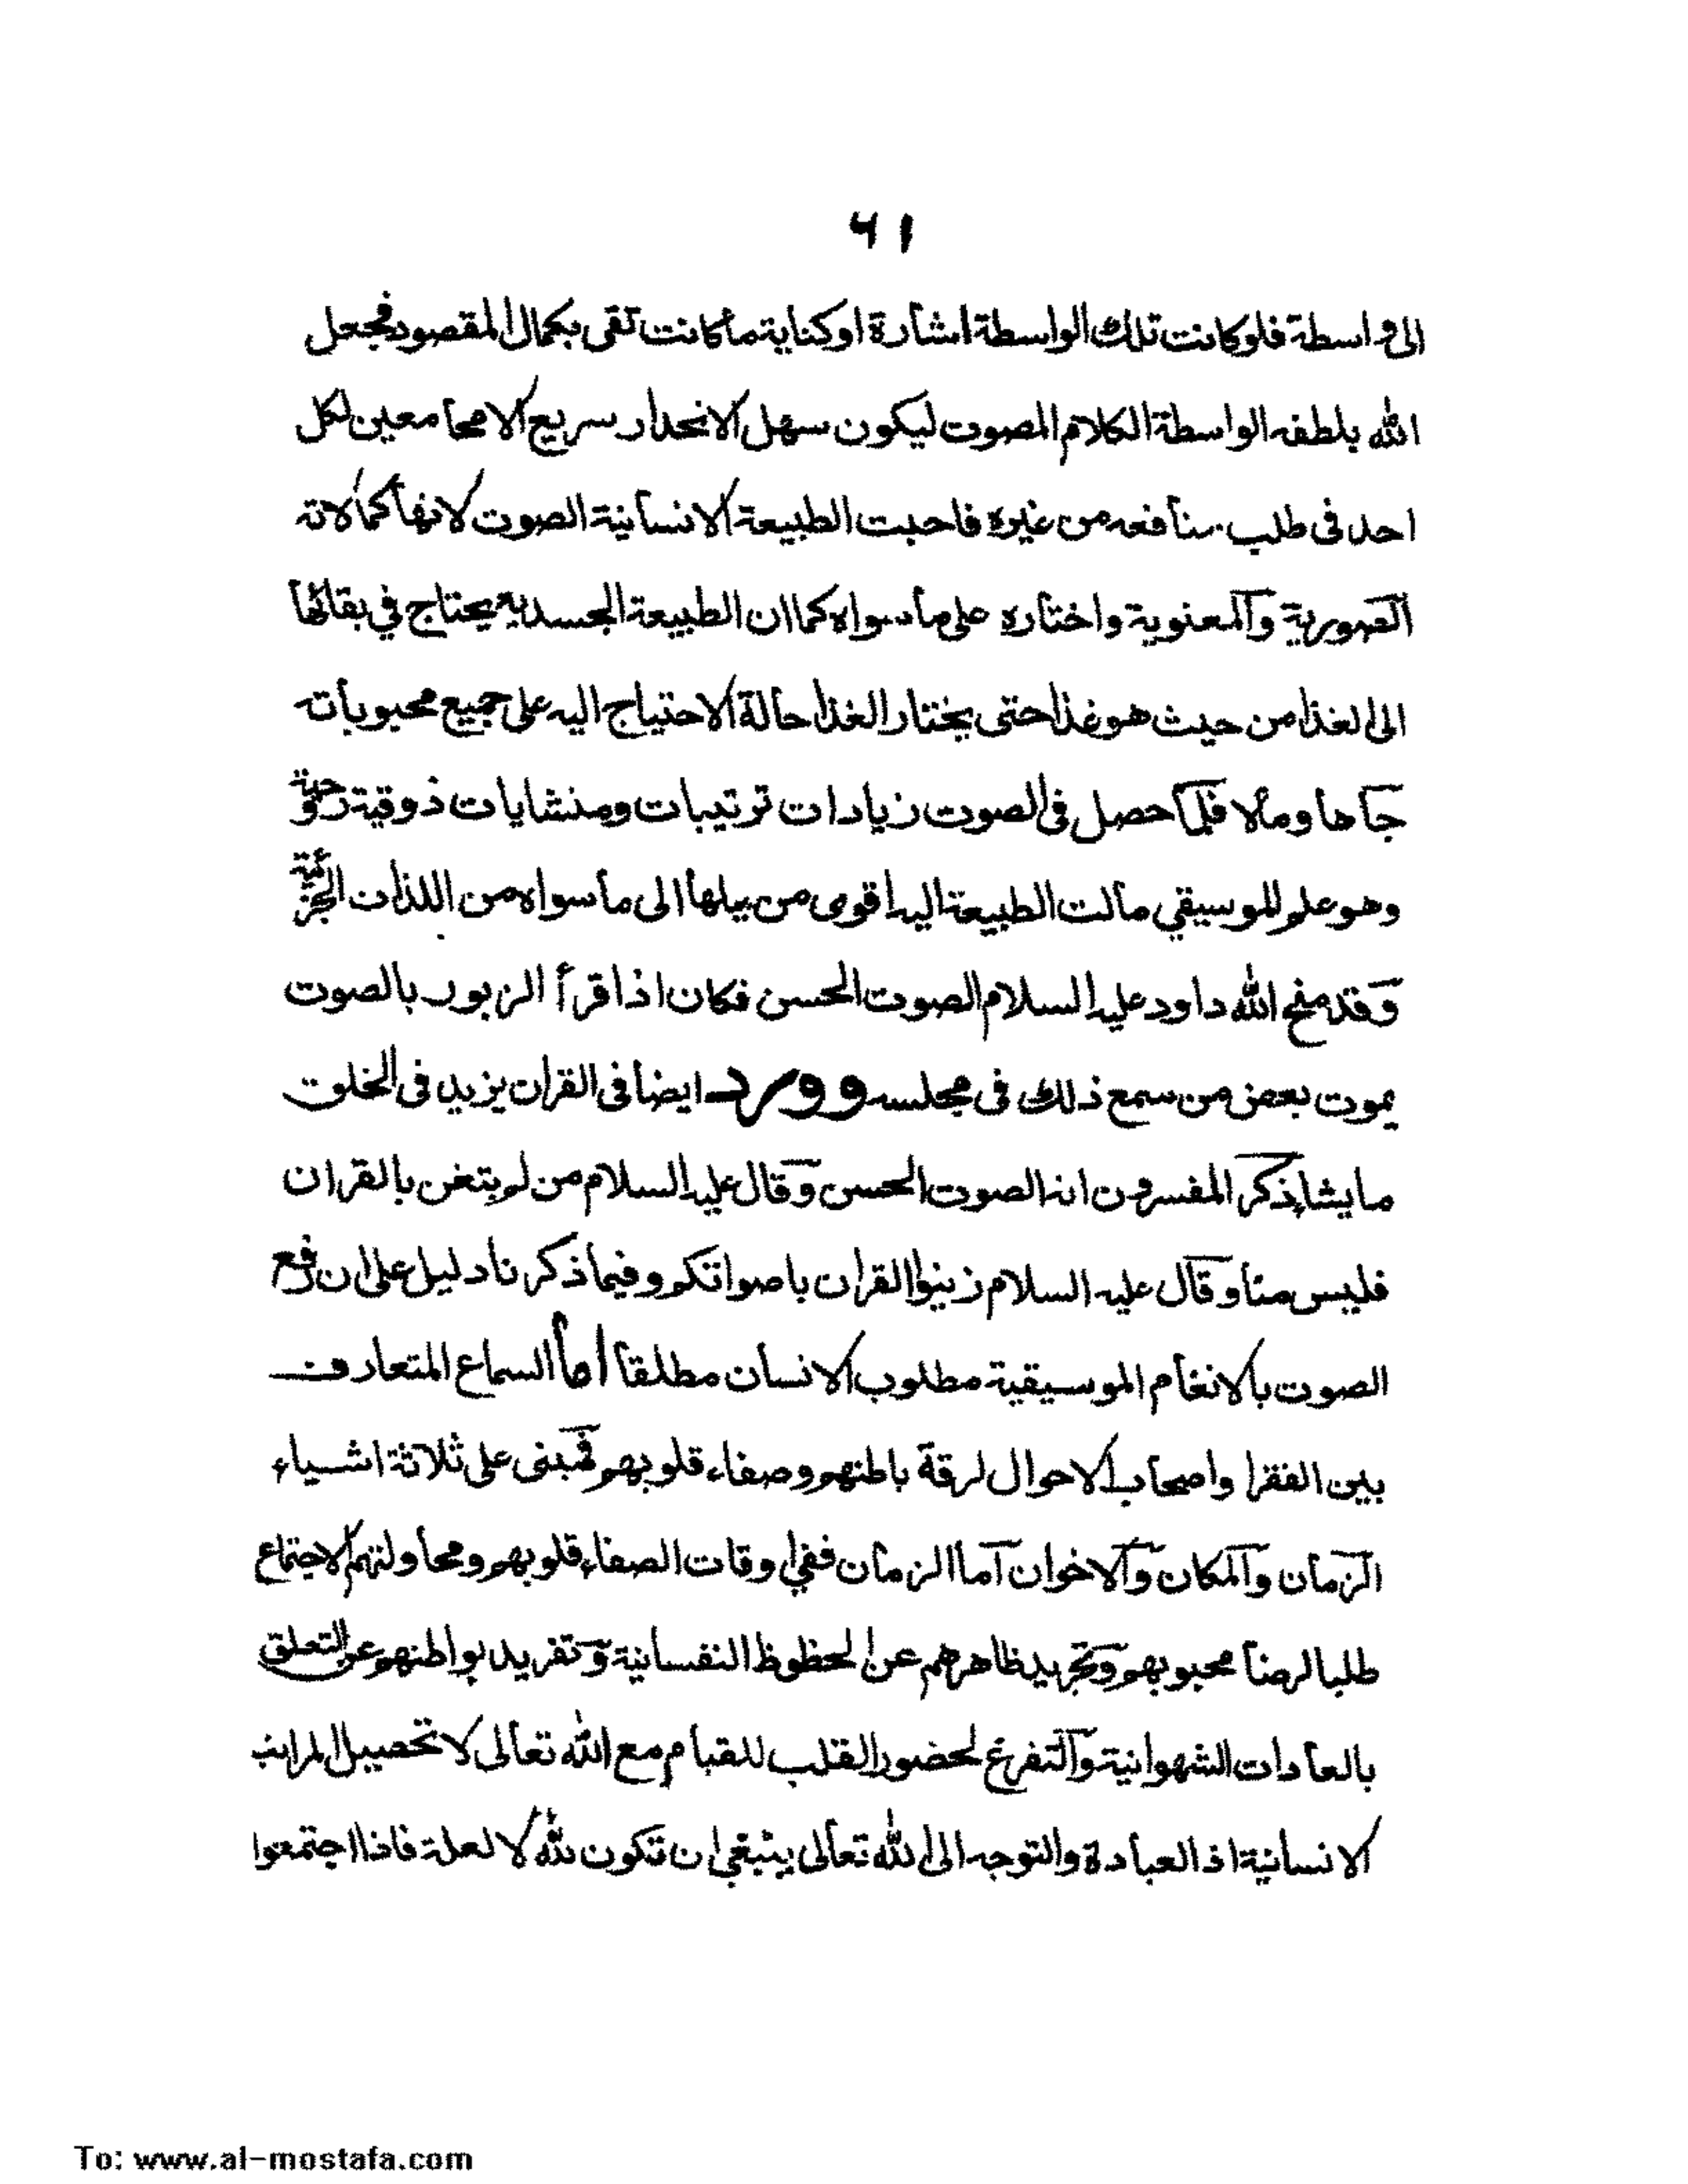 ٦١
الى واسطة فلو كانت تلك الواسطة اشارة او كناية ما كانت تفى بكمال المقصود فجعل
الله بلطفه الواسطة الكلام المصوت ليكون سهل الانحدار سريع الامحا معين لكل
احد فى طلب منافعه من غيره فاحبت الطبيعة الانسانية الصوت لانها كمالاته
الصورية والمعنوية واختاره على ما سواه كما ان الطبيعة الجسدية يحتاج في بقائها
الى الغذا من حيث هو غذا حتى يختار الغذا حالة الاحتياج اليه على جميع محبوباته
جاها ومالا فلما حصل فى الصوت زيادات ترتيبات ومنشايات ذوقية روحية
وهو علم الموسيقي مالت الطبيعة اليه اقوى من ميلها الى ما سواه من اللذات الجزئية
وقد منح الله داود عليه السلام الصوت الحسن فكان اذا قرأ الزبور بالصوت
يموت بعض من سمع ذلك فى مجلسه وورد ايضا فى القران يزيد فى الخلق
ما يشا ذكر المفسرون انه الصوت الحسن وقال عليه السلام من لم يتغن بالقران
فليس منا وقال عليه السلام زينوا القران باصواتكم وفيما ذكرنا دليل على ان رفع
الصوت بالانغام الموسيقية مطلوب الانسان مطلقا اما السماع المتعارف
بين الفقرا واصحاب الاحوال لرقة باطنهم وصفاء قلوبهم فمبنى على ثلاثة اشياء
الزمان والمكان والاخوان اما الزمان ففي اوقات الصفاء قلوبهم ومحاولتهم الاجتماع
طلبا لرضا محبوبهم وتجريد ظاهرهم عن الحظوظ النفسانية وتفريد بواطنهم عن التعلق
بالعادات الشهوانية والتفرغ لحضور القلب للقيام مع الله تعالى لا تحصيل المراتب
الانسانية اذ العبادة والتوجه الى الله تعالى ينبغي ان تكون لله لا لعلة فاذا اجتمعوا
To: www.al-mostafa.com